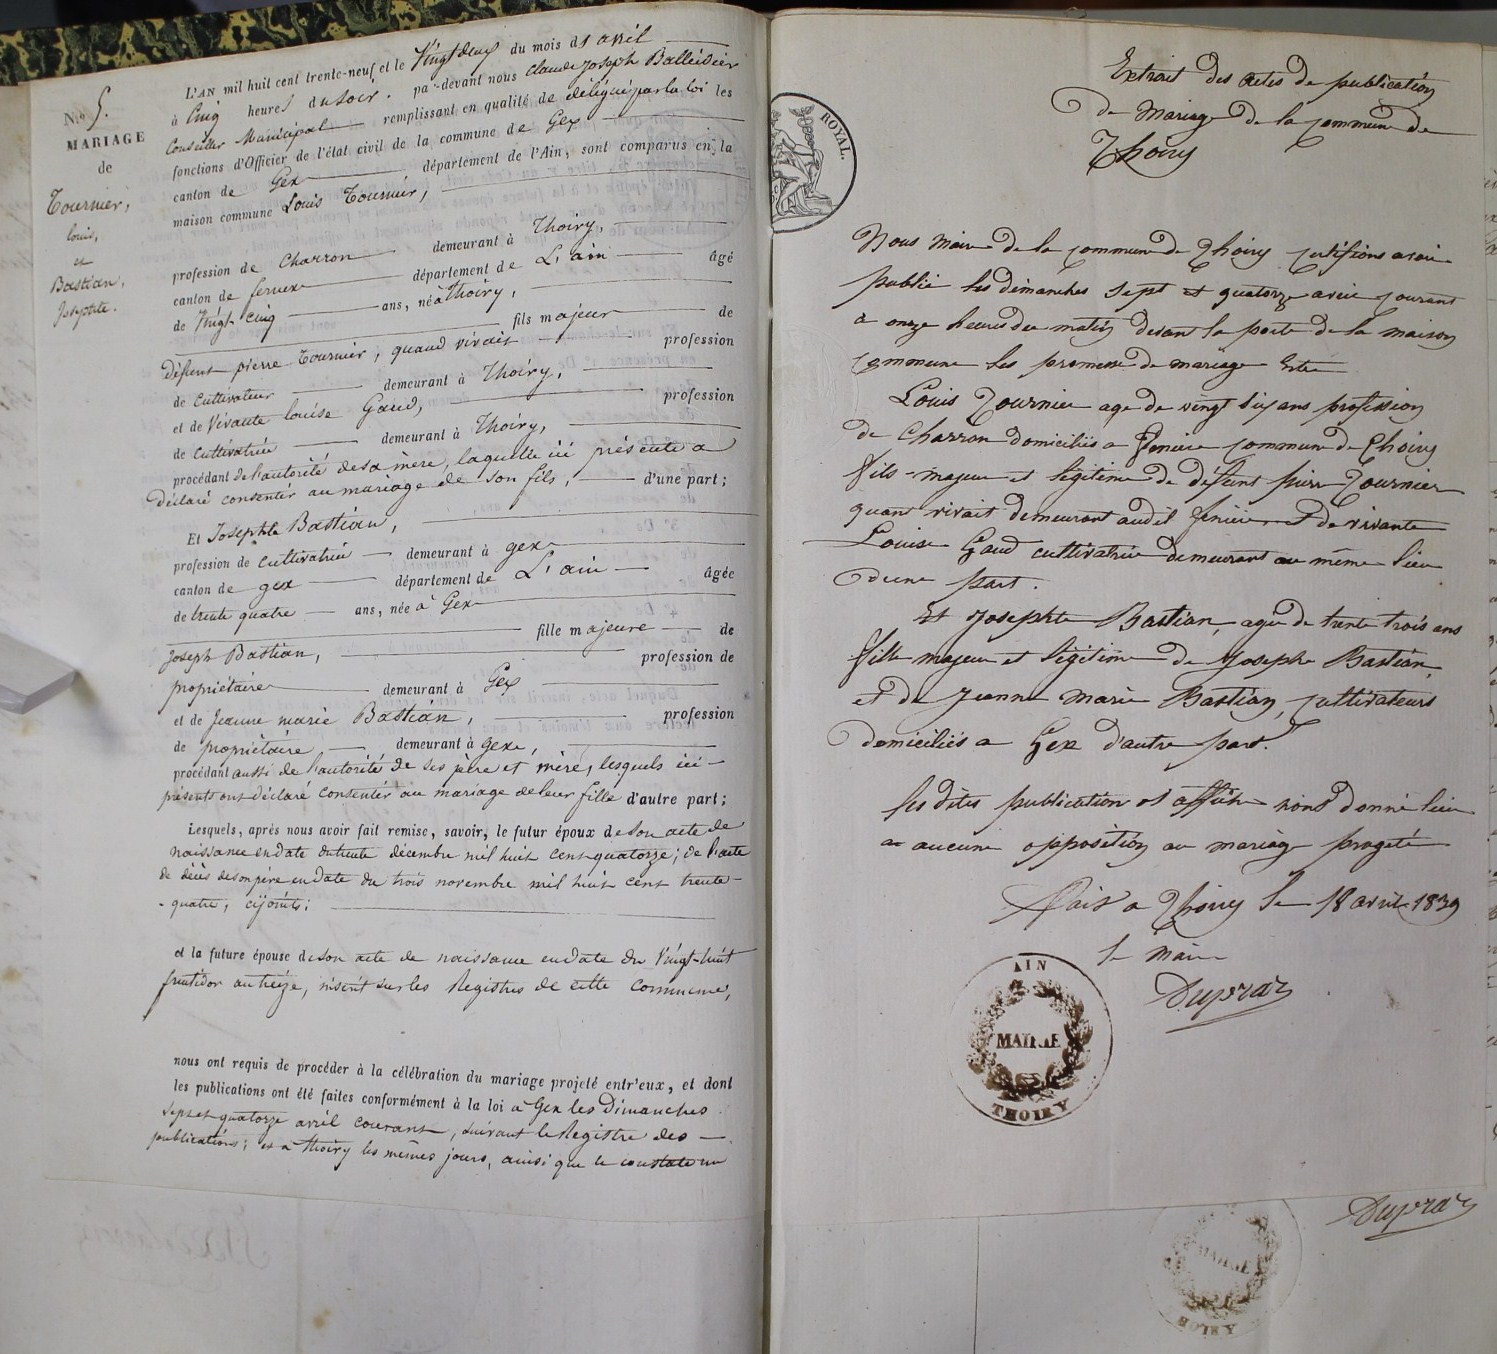 N.o 5.
MARIAGE
de
Tournier,
louis,
et
Bastian,
Josephte.
L'AN mil huit cent trente-neuf et le Vingt deux du mois d'avril
à Cinq heures du soir. pa-devant nous Claude Joseph Balleidier
Conseiller Municipal remplissant en qualité de délégué par la loi les
fonctions d'Officier de l'état civil de la commune de Gex
canton de Gex département de l'Ain, sont comparus en la
maison commune Louis Tournier,
profession de Charron demeurant à Thoiry,
canton de ferney département de L'ain âgé
de Vingt cinq ans, né à Thoiry,
fils majeur de
défunt pierre Tournier, quand vivait profession
de Cultivateur demeurant à Thoiry,
et de Vivante louise Gaud, profession
de Cultivatrice demeurant à Thoiry,
procédant de l'autorité de sa mère, laquelle ici présente a
déclaré consentir au mariage de son fils, d'une part;
Et Josephte Bastian,
profession de cultivatrice demeurant à gex
canton de gex département de L'ain âgée
de trente quatre ans, née à Gex
fille majeure de
Joseph Bastian, profession de
propriétaire demeurant à Gex
et de Jeanne marie Bastian, profession
de propriétaire, demeurant à Gex,
procédant aussi de l'autorité de ses père et mère, lesquels ici
présents ont déclaré consentir au mariage de leur fille d'autre part;
Lesquels, après nous avoir fait remise, savoir, le futur époux de son acte de
naissance en date du trente décembre mil huit cent quatorze; de l'acte
de décès de son père en date du trois novembre mil huit cent trente-
quatre, cijoints;
et la future épouse de son acte de naissance en date du Vingt-huit
fructidor an treize, inséré sur les Registres de cette commune,
nous ont requis de procéder à la célébration du mariage projeté entr'eux, et dont
les publications ont été faites conformément à la loi à Gex les Dimanches
sept et quatorze avril courant, suivant le Registre des
publications; et à Thoiry les mêmes jours, ainsi que le constate un
ROYAL.
Extrait des actes de publication
de Mariage de la commune de
Thoiry
Nous Maire de la commune de Thoiry certifions avoir
publié les dimanches sept et quatorze avril courant
a onze heures du matin devant la porte de la maison
commune les promesse de mariage Entre
Louis Tournier age de vingt six ans profession
de Charron domiciliés a fenieu commune de Thoiry
fils-majeur et légitime de défunt pierre Tournier
quant vivait demeurant audit feniere et de vivante
Louise Gaud cultivatrice demeurant au même lieu
d'une part.
Et Josephte Bastian, agée de trente trois ans
fille majeur et légitime de Joseph Bastian,
et de Jeanne Marie Bastian, cultivateurs
domiciliés a Gex d'autre part.
les dites publication et affiche n'ont donné lieu
a aucune opposition au mariage progeté
Fait a Thoiry le 18 avril 1839
le Maire
Dupraz
AIN
MAIRIE
THOIRY
Dupraz
MAIRIE
THOIRY